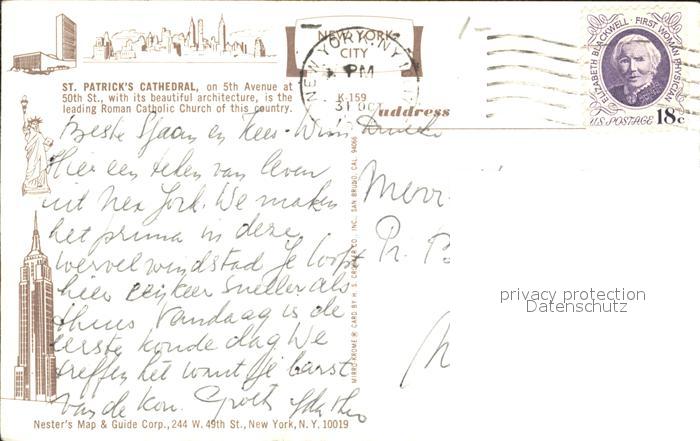 NEW YORK
CITY
NEW YORK, NY
PM
31 OCT
ELIZABETH BLACKWELL · FIRST WOMAN PHYSICIAN
U.S. POSTAGE 18c
ST. PATRICK'S CATHEDRAL, on 5th Avenue at
50th St., with its beautiful architecture, is the
leading Roman Catholic Church of this country.
K-159
address
Beste Sjaan en Kees-Wim
Hier een teken van leven
uit New York. We maken
het prima in deze
wervelwindstad Je loopt
hier zeker sneller als
thuis Vandaag is de
eerste koude dag We
treffen het want je barst
van de kou. Groetj
MIRRO-KROME ® CARD BY H. S. CROCKER CO., INC., SAN BRUNO, CAL. 94066
privacy protection
Datenschutz
Nester's Map & Guide Corp., 244 W. 49th St., New York, N.Y. 10019